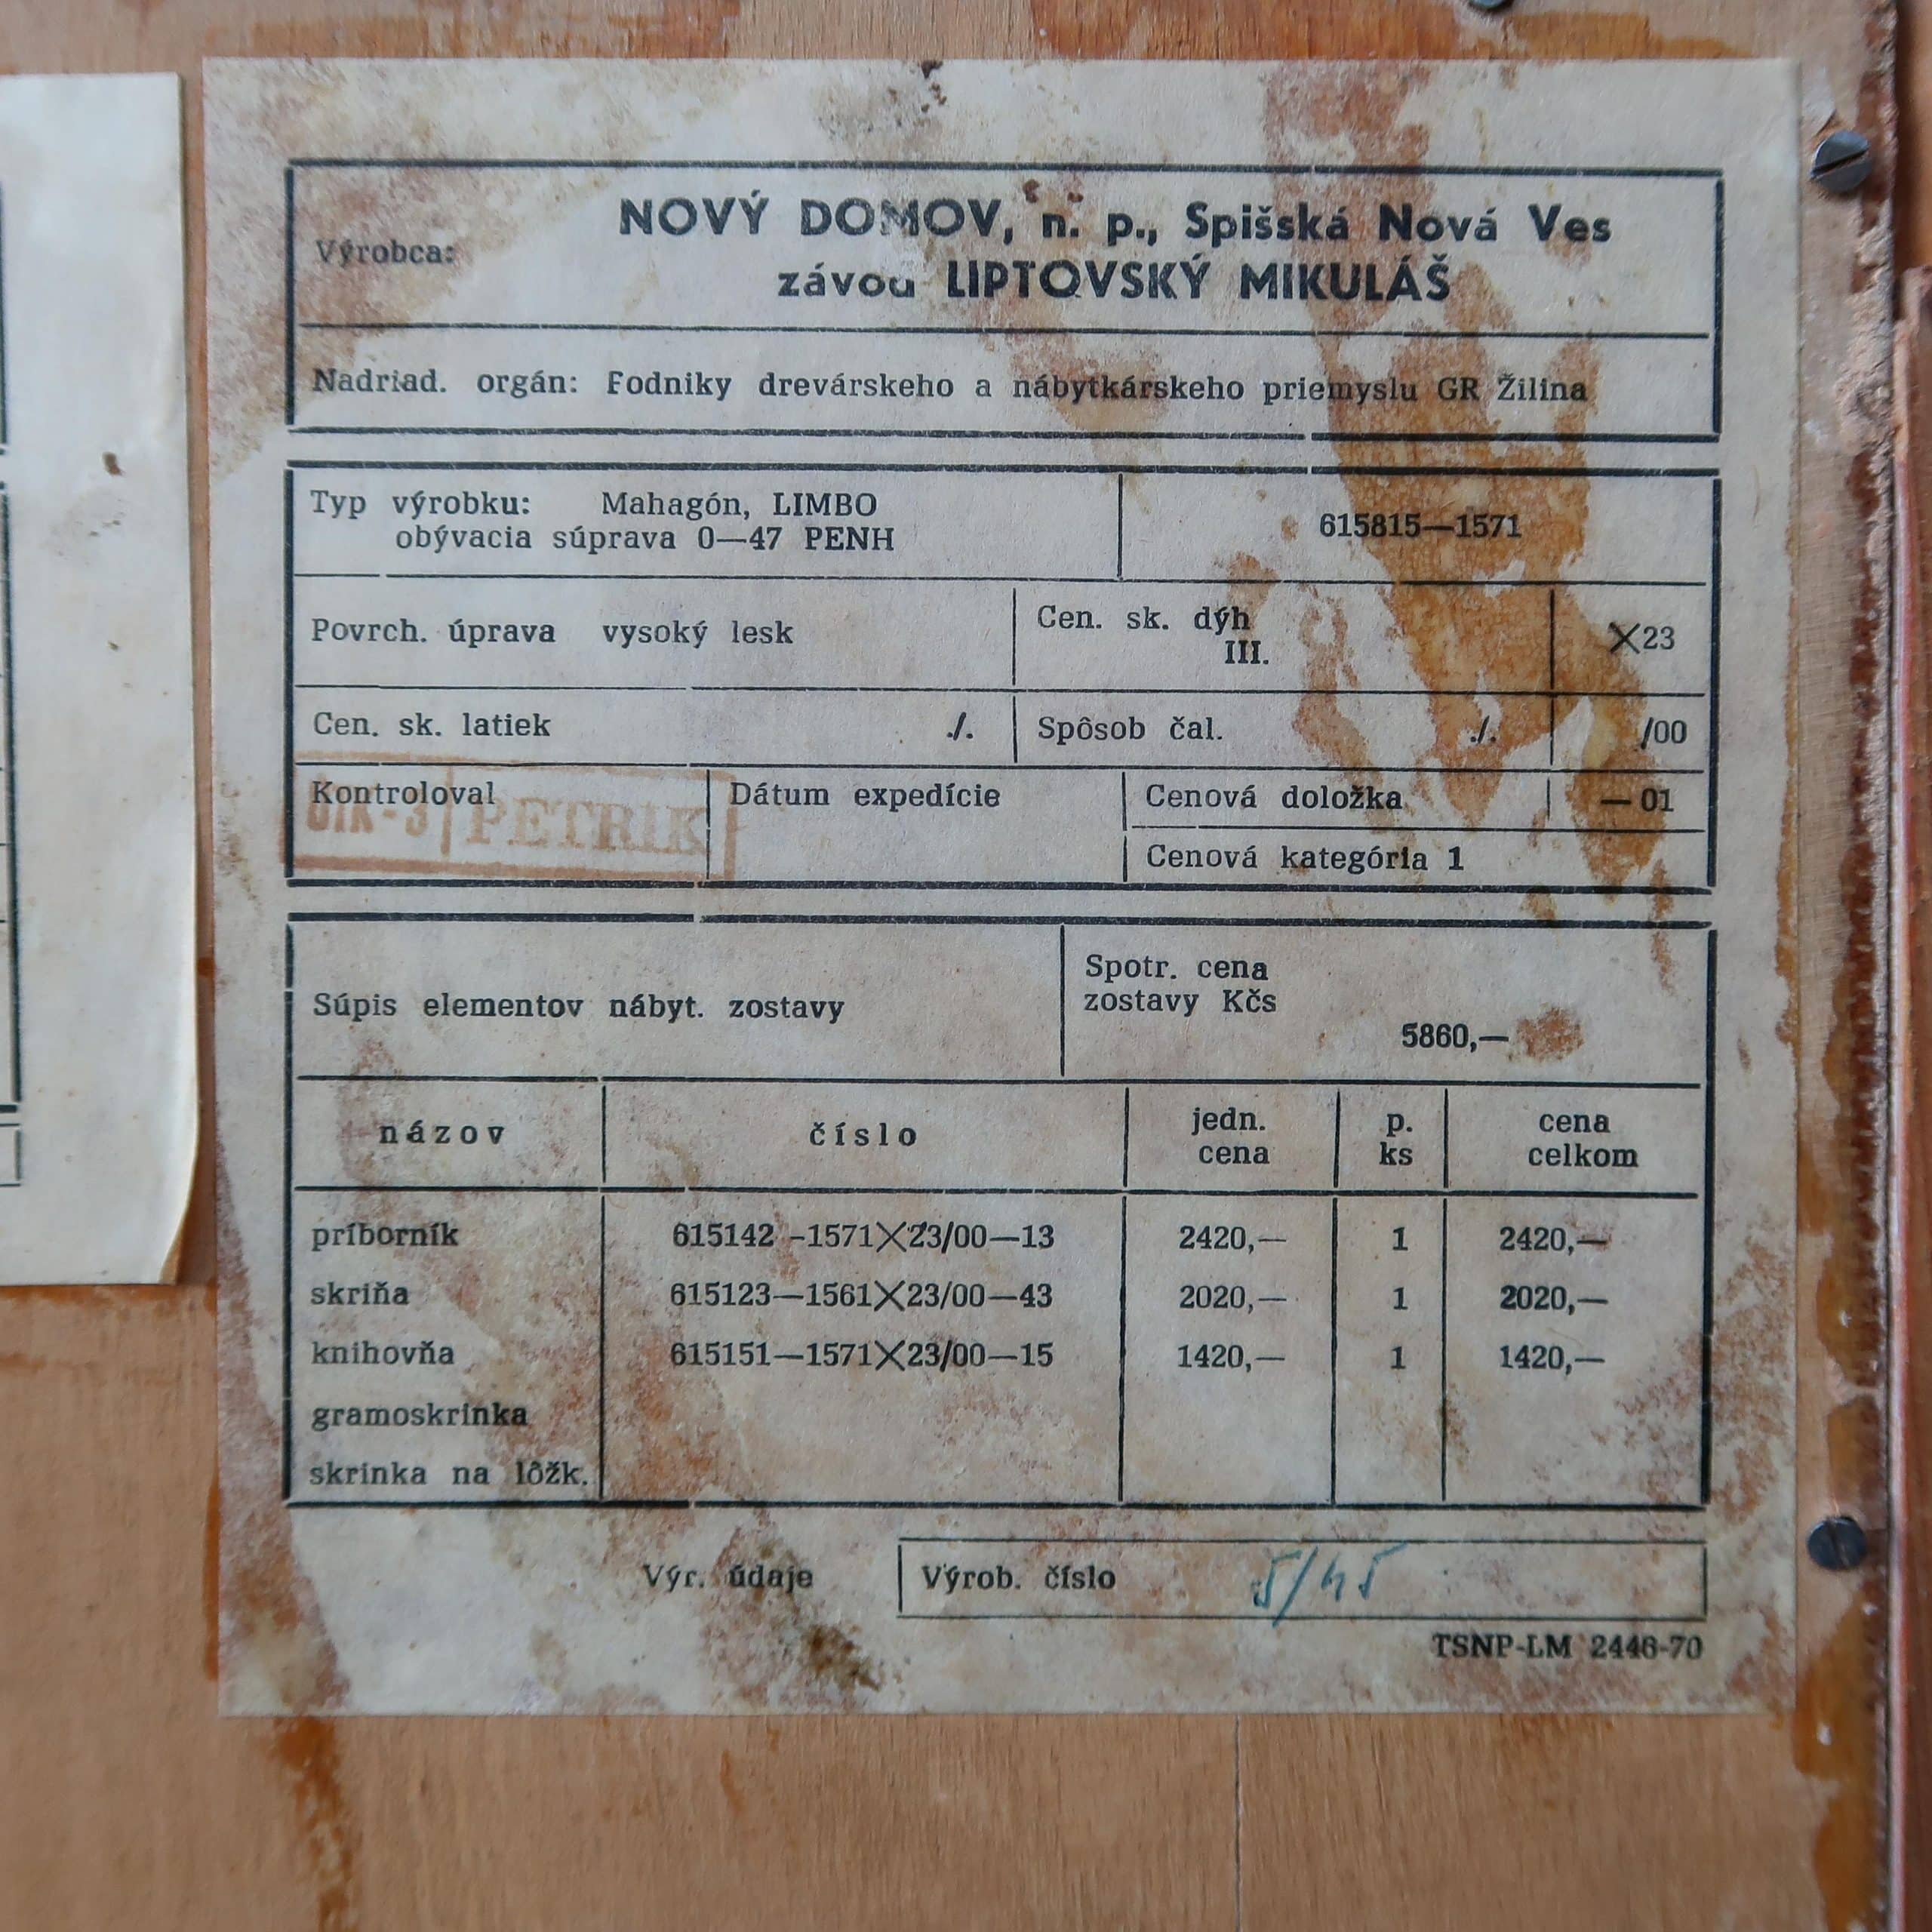 Výrobca:
NOVÝ DOMOV, n. p., Spišská Nová Ves
závod LIPTOVSKÝ MIKULÁŠ
Nadriad. orgán: Podniky drevárskeho a nábytkárskeho priemyslu GR Žilina
Typ výrobku: Mahagón, LIMBO
obývacia súprava 0—47 PENH
615815—1571
Povrch. úprava vysoký lesk
Cen. sk. dýh
III.
X23
Cen. sk. latiek ./.
Spôsob čal. ./.
/00
Kontroloval
PETRIK
Dátum expedície
Cenová doložka —01
Cenová kategória 1
Súpis elementov nábyt. zostavy
Spotr. cena
zostavy Kčs
5860,—
názov číslo jedn. cena p. ks cena celkom
príborník 615142-1571X23/00—13 2420,— 1 2420,—
skriňa 615123—1561X23/00—43 2020,— 1 2020,—
knihovňa 615151—1571X23/00—15 1420,— 1 1420,—
gramoskrinka
skrinka na lôžk.
Výr. údaje
Výrob. číslo 5/45
TSNP-LM 2446-70